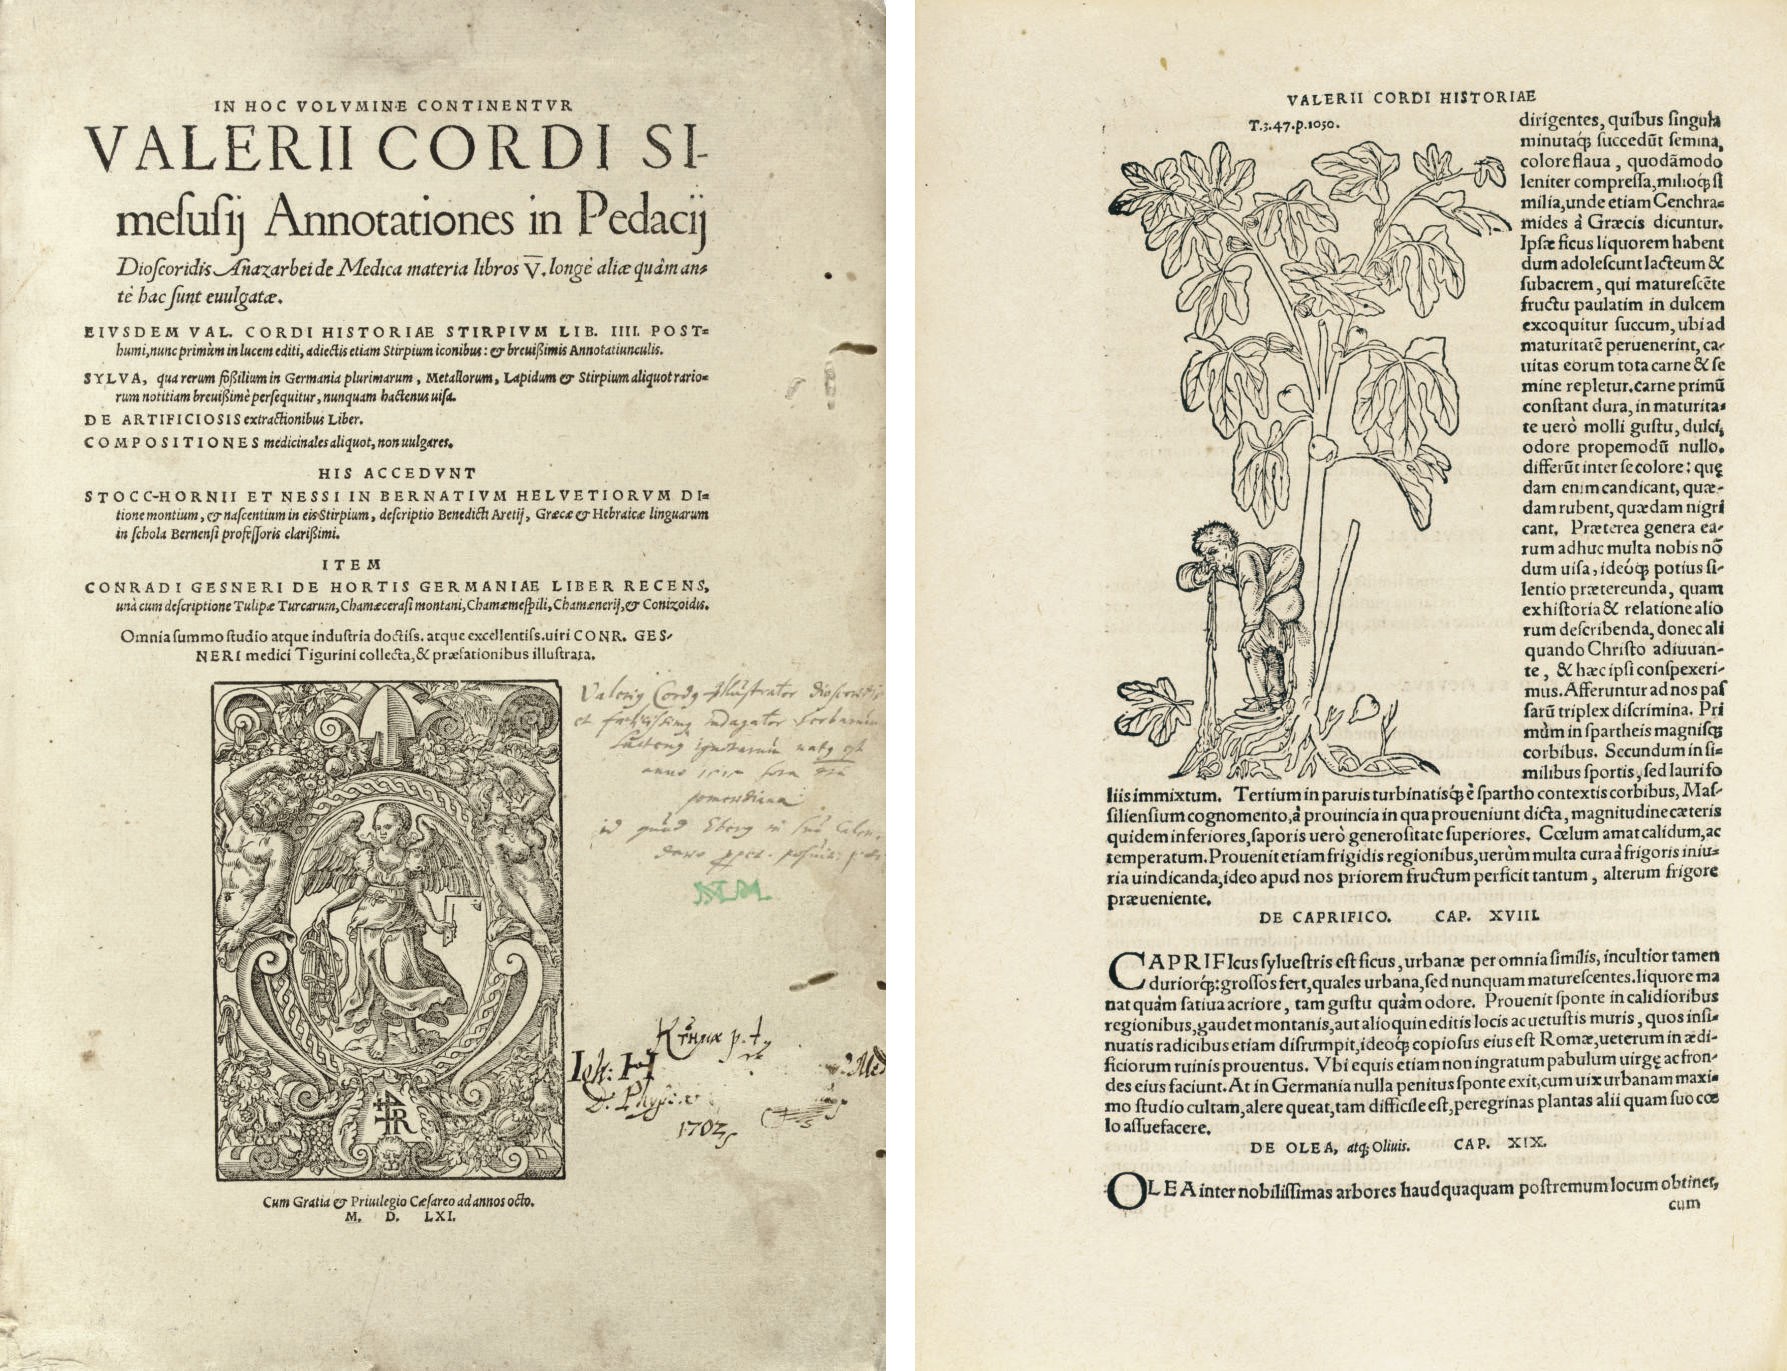 IN HOC VOLVMINE CONTINENTVR
VALERII CORDI SI-
mesusij Annotationes in Pedacij
Dioscoridis Anazarbei de Medica materia libros V. longè aliæ quàm an=
tè hac sunt euulgatæ.
EIVSDEM VAL. CORDI HISTORIAE STIRPIVM LIB. IIII. POST=
humi, nunc primùm in lucem editi, adiectis etiam Stirpium iconibus: & breuißimis Annotatiunculis.
SYLVA, qua rerum foßilium in Germania plurimarum, Metallorum, Lapidum & Stirpium aliquot rario=
rum notitiam breuißimè persequitur, nunquam hactenus uisa.
DE ARTIFICIOSIS extractionibus Liber.
COMPOSITIONES medicinales aliquot, non uulgares.
HIS ACCEDVNT
STOCC-HORNII ET NESSI IN BERNATIVM HELVETIORVM DI=
tione montium, & nascentium in eis Stirpium, descriptio Benedicti Aretij, Græcæ & Hebraicæ linguarum
in schola Bernensi professoris clarißimi.
ITEM
CONRADI GESNERI DE HORTIS GERMANIAE LIBER RECENS,
unà cum descriptione Tulipæ Turcarum, Chamæcerasi montani, Chamæmespili, Chamænerij, & Conizoidis.
Omnia summo studio atque industria doctiss. atque excellentiss. uiri CONR. GES-
NERI medici Tigurini collecta, & præfationibus illustrata.
1702
Cum Gratia & Priuilegio Cæsareo ad annos octo.
M. D. LXI.
VALERII CORDI HISTORIAE
T.3.47.p.1050.
dirigentes, quibus singula
minutaq; succedũt semina,
colore flaua, quodãmodo
leniter compressa, milioq; si
milia, unde etiam Cenchra=
mides à Græcis dicuntur.
Ipsæ ficus liquorem habent
dum adolescunt lacteum &
subacrem, qui maturescẽte
fructu paulatim in dulcem
excoquitur succum, ubi ad
maturitatẽ peruenerint, ca-
uitas eorum tota carne & se
mine repletur. carne primũ
constant dura, in maturita=
te uerò molli gustu, dulci,
odore propemodũ nullo.
differũt inter se colore: quę
dam enim candicant, quæ-
dam rubent, quædam nigri
cant. Præterea genera ea-
rum adhuc multa nobis nõ
dum uisa, ideóq; potius si-
lentio prætereunda, quam
ex historia & relatione alio
rum describenda, donec ali
quando Christo adiuuan-
te, & hæc ipsi conspexeri-
mus. Afferuntur ad nos pas
sarũ triplex discrimina. Pri
mùm in spartheis magnisq;
corbibus. Secundum in si=
milibus sportis, sed lauri fo
liis immixtum. Tertium in paruis turbinatisq; è spartho contextis corbibus, Mas-
siliensium cognomento, à prouincia in qua proueniunt dicta, magnitudine cæteris
quidem inferiores, saporis uerò generositate superiores. Cœlum amat calidum, ac
temperatum. Prouenit etiam frigidis regionibus, uerùm multa cura à frigoris iniu=
ria uindicanda, ideo apud nos priorem fructum perficit tantum, alterum frigore
præueniente.
DE CAPRIFICO. CAP. XVIII.
CAPRIFIcus syluestris est ficus, urbanæ per omnia similis, incultior tamen
duriorq;: grossos fert, quales urbana, sed nunquam maturescentes. liquore ma
nat quàm satiua acriore, tam gustu quàm odore. Prouenit sponte in calidioribus
regionibus, gaudet montanis, aut alioquin editis locis ac uetustis muris, quos insi-
nuatis radicibus etiam disrumpit, ideoq; copiosus eius est Romæ, ueterum in ædi-
ficiorum ruinis prouentus. Vbi equis etiam non ingratum pabulum uirgę ac fron-
des eius faciunt. At in Germania nulla penitus sponte exit, cum uix urbanam maxi=
mo studio cultam, alere queat, tam difficile est, peregrinas plantas alii quam suo cœ
lo assuefacere.
DE OLEA, atq; Oliuis. CAP. XIX.
OLEA inter nobilissimas arbores haudquaquam postremum locum obtinet,
cum